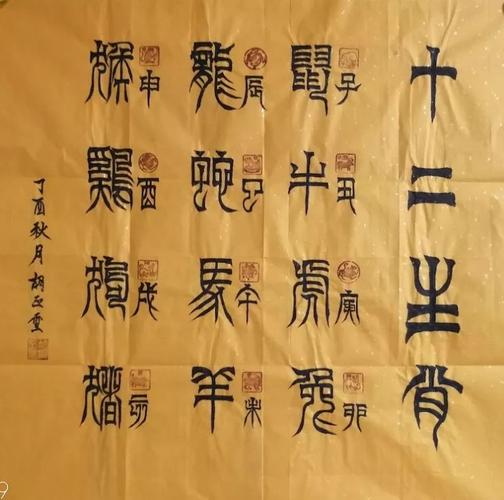 十二生肖
鼠子
牛丑
虎寅
兔卯
龍辰
蛇巳
馬午
羊未
猴申
鷄酉
狗戌
猪亥
丁酉秋月胡正